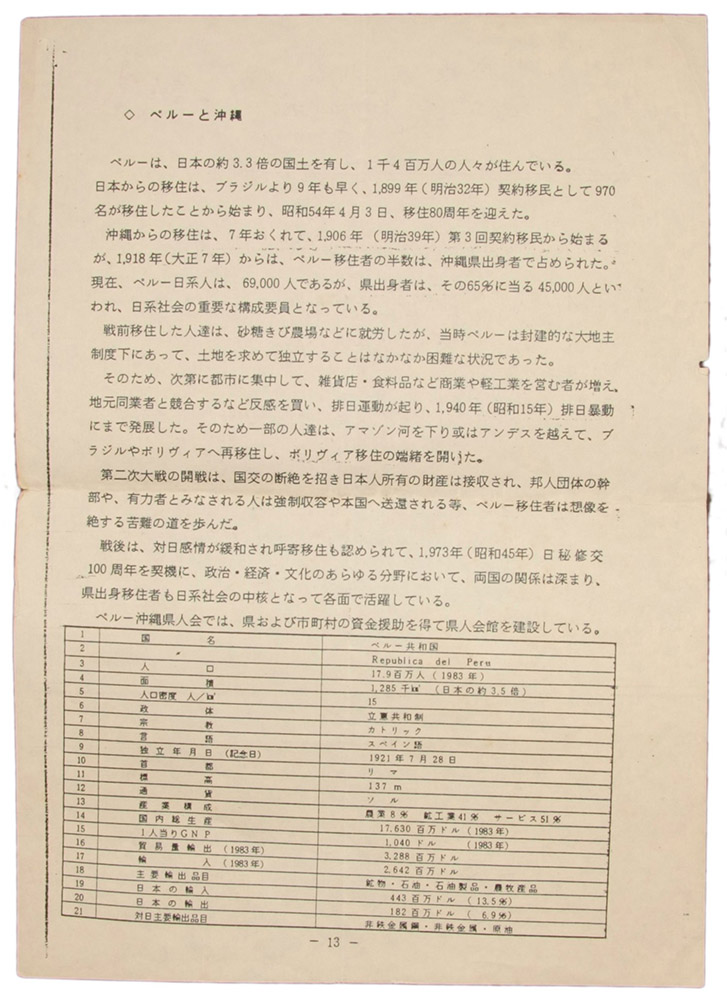 ◇ ペルーと沖縄
ペルーは、日本の約3.3倍の国土を有し、1千4百万人の人々が住んでいる。
日本からの移住は、ブラジルより9年も早く、1,899年(明治32年)契約移民として970
名が移住したことから始まり、昭和54年4月3日、移住80周年を迎えた。
沖縄からの移住は、7年おくれて、1,906年(明治39年)第3回契約移民から始まる
が、1,918年(大正7年)からは、ペルー移住者の半数は、沖縄県出身者で占められた。
現在、ペルー日系人は、69,000人であるが、県出身者は、その65%に当る45,000人とい
われ、日系社会の重要な構成要員となっている。
戦前移住した人達は、砂糖きび農場などに就労したが、当時ペルーは封建的な大地主
制度下にあって、土地を求めて独立することはなかなか困難な状況であった。
そのため、次第に都市に集中して、雑貨店・食料品など商業や軽工業を営む者が増え、
地元同業者と競合するなど反感を買い、排日運動が起り、1,940年(昭和15年)排日暴動
にまで発展した。そのため一部の人達は、アマゾン河を下り或はアンデスを越えて、ブ
ラジルやボリヴィアへ再移住し、ボリヴィア移住の端緒を開けた。
第二次大戦の開戦は、国交の断絶を招き日本人所有の財産は接収され、邦人団体の幹
部や、有力者とみなされる人は強制収容や本国へ送還される等、ペルー移住者は想像を
絶する苦難の道を歩んだ。
戦後は、対日感情が緩和され呼寄移住も認められて、1,973年(昭和45年)日秘修交
100周年を契機に、政治・経済・文化のあらゆる分野において、両国の関係は深まり、
県出身移住者も日系社会の中核となって各面で活躍している。
ペルー沖縄県人会では、県および市町村の資金援助を得て県人会館を建設している。
1 国名 ペルー共和国
2 Republica del Peru
3 人口 17.9百万人(1983年)
4 面積 1,285千km²(日本の約3.5倍)
5 人口密度 人/km² 15
6 政体 立憲共和制
7 宗教 カトリック
8 言語 スペイン語
9 独立年月日(記念日) 1921年7月28日
10 首都 リマ
11 標高 137m
12 通貨 ソル
13 産業構成 農業8% 鉱工業41% サービス51%
14 国内総生産 17,630百万ドル(1983年)
15 1人当りGNP 1,040ドル(1983年)
16 貿易量輸出(1983年) 3,288百万ドル
17 輸入(1983年) 2,642百万ドル
18 主要輸出品目 鉱物・石油・石油製品・農牧産品
19 日本の輸入 443百万ドル(13.5%)
20 日本の輸出 182百万ドル(6.9%)
21 対日主要輸出品目 非鉄金属鉱・非鉄金属・原油
- 13 -